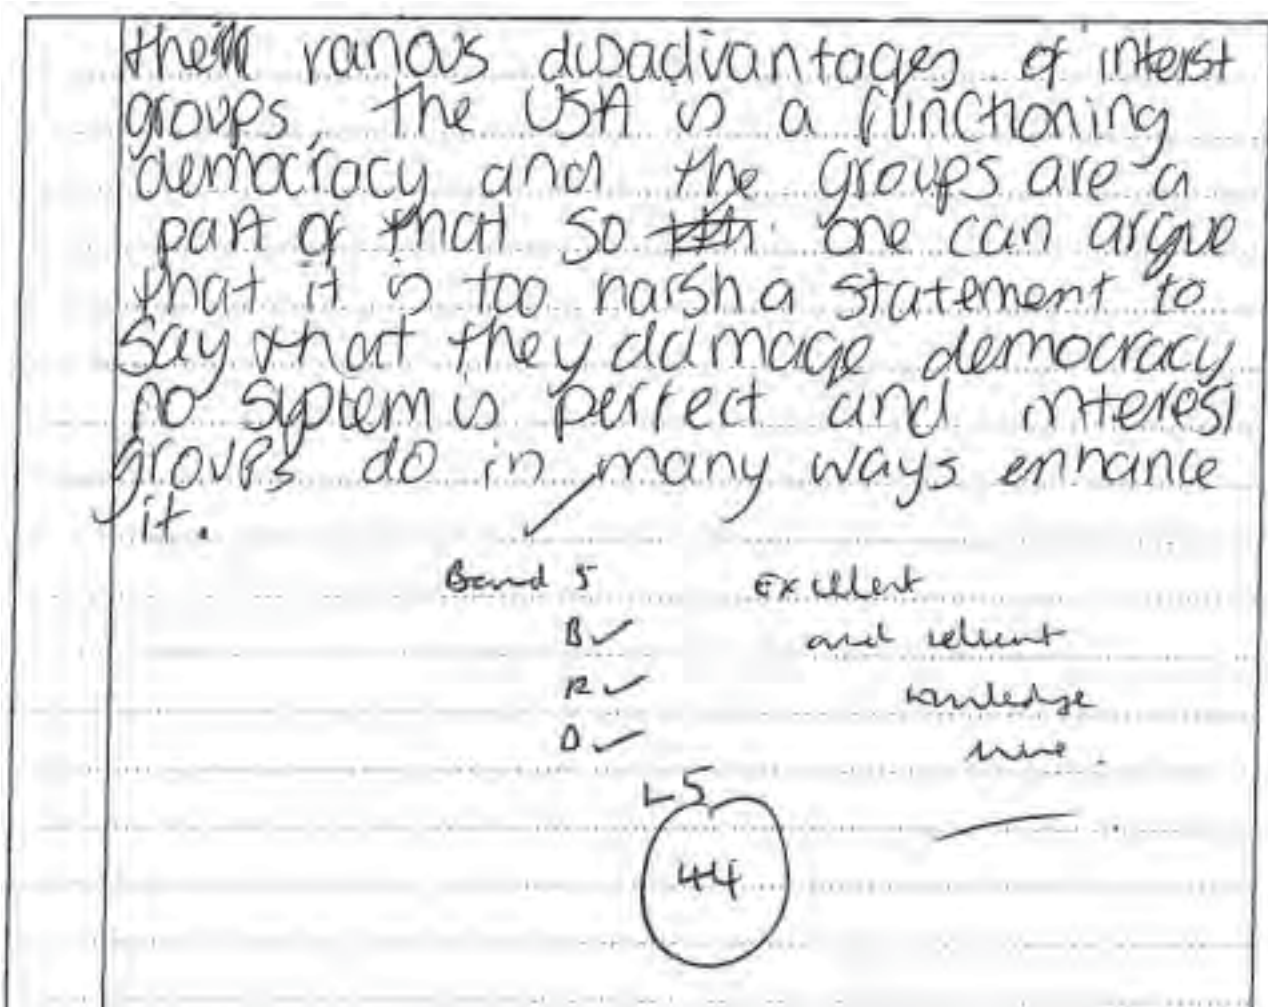 their various disadvantages of interst
groups, the USA is a functioning
democracy and the groups are a
part of that so one can argue
that it is too harsh a statement to
say that they damage democracy
no system is perfect and interest
groups do in many ways enhance
it.
Band 5 Excellent
B✓ and relevant
R✓ knowledge
D✓
L5
44